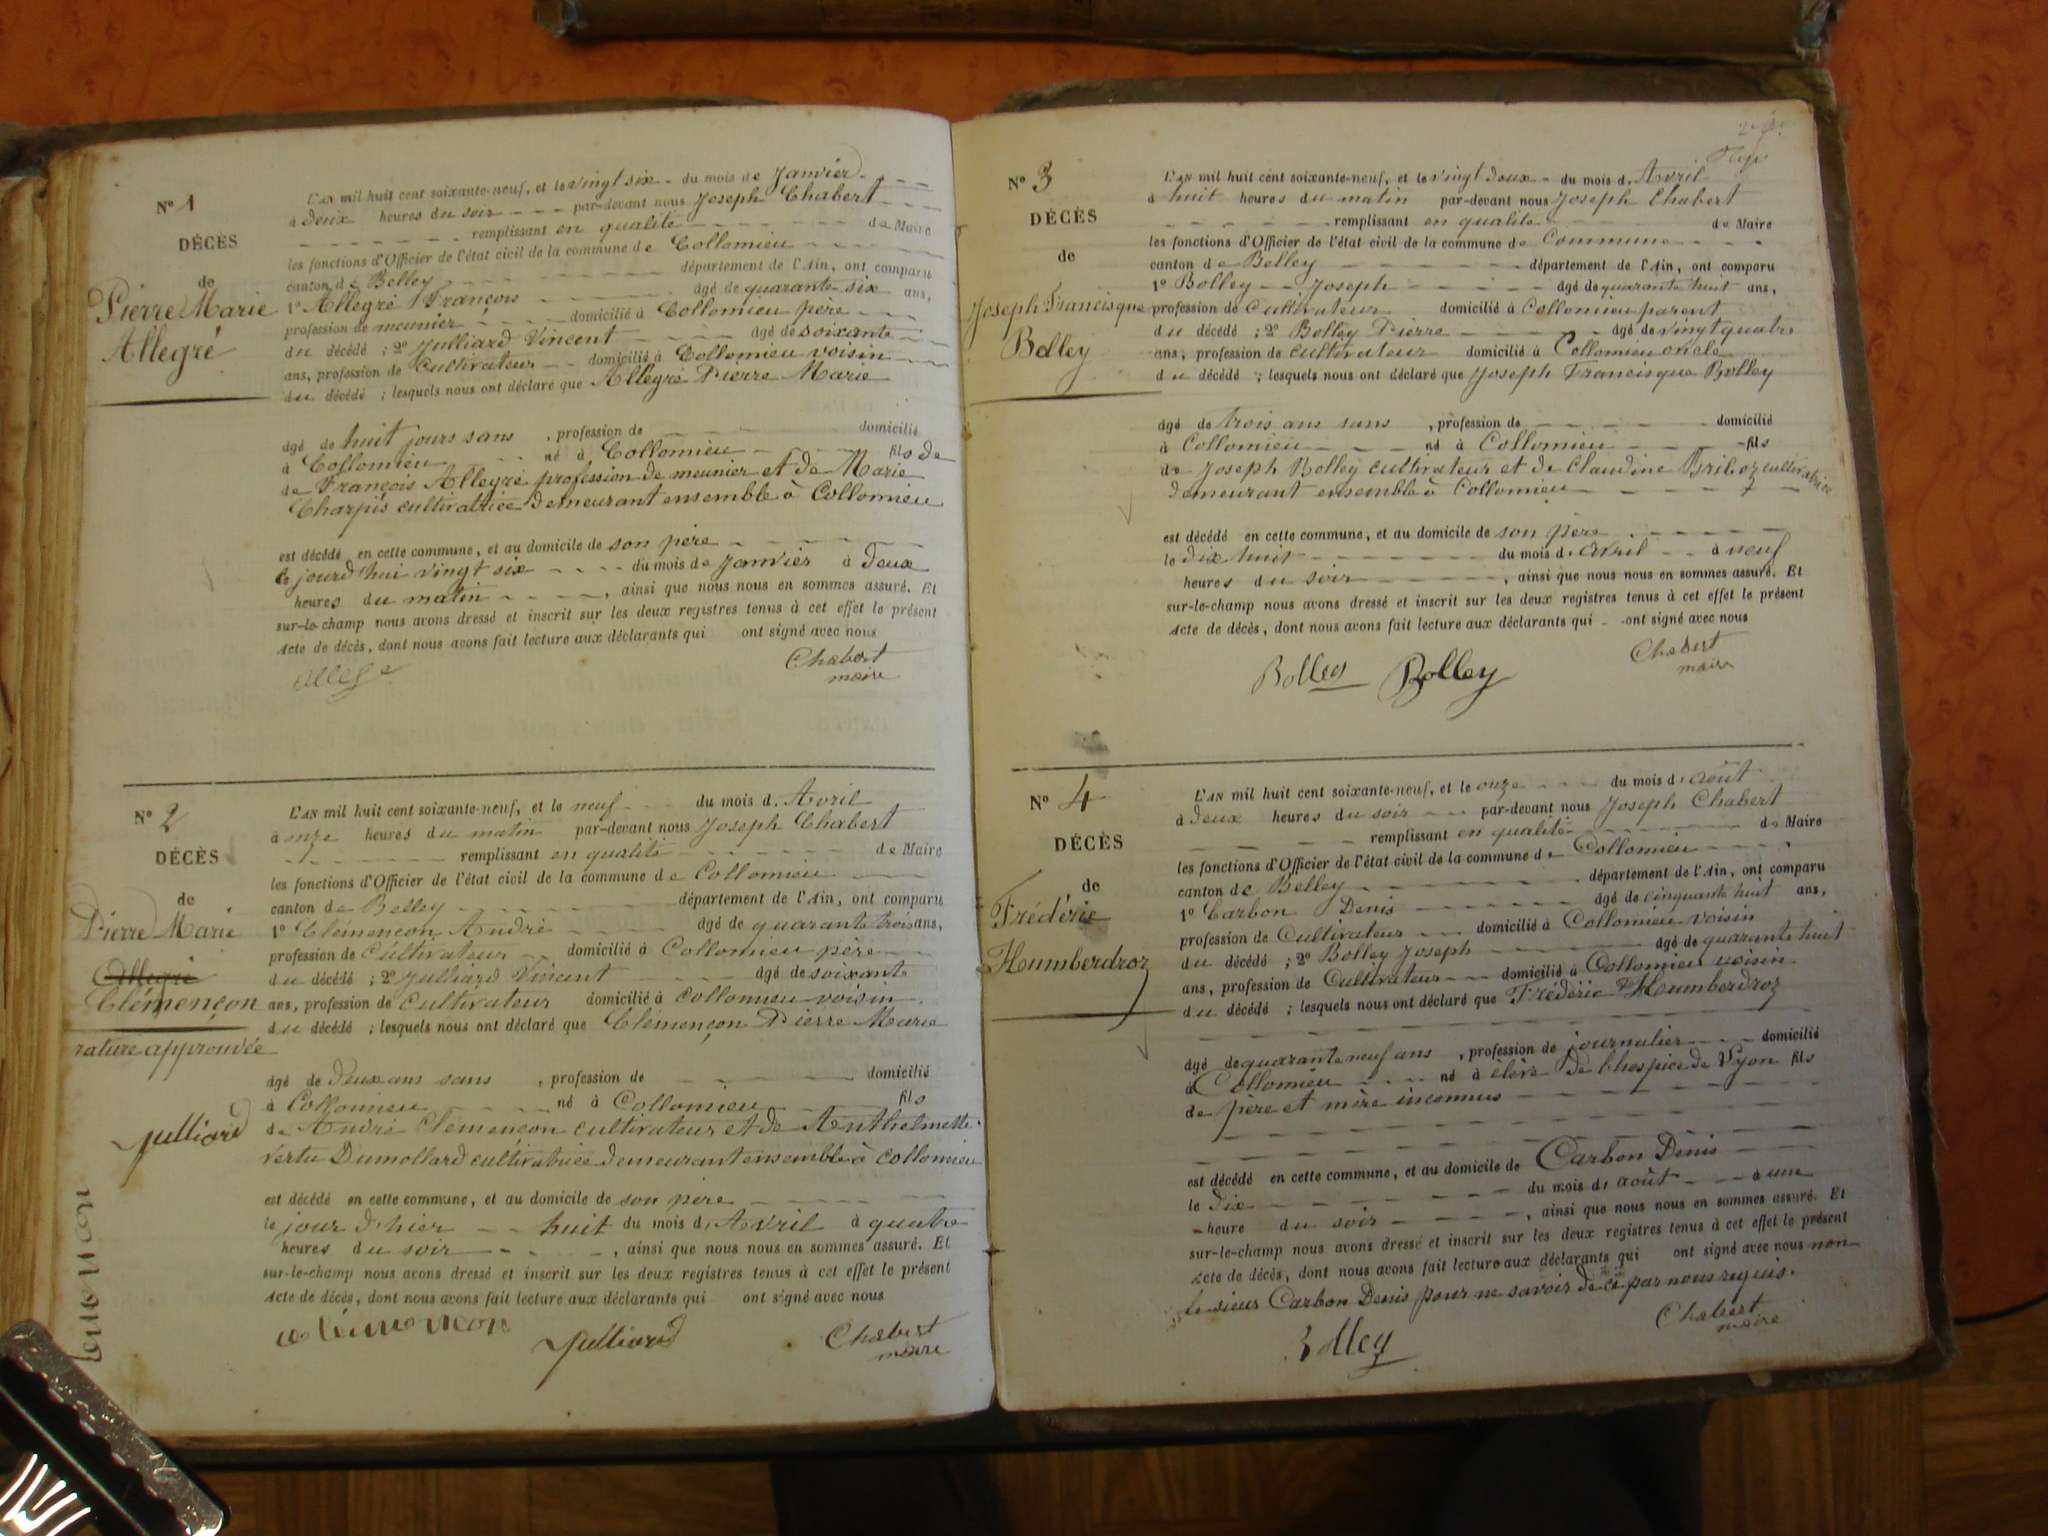 N° 1
DÉCÈS
de
Pierre Marie
Allegré
L'AN mil huit cent soixante-neuf, et le vingt six du mois de Janvier
à deux heures du soir par-devant nous Joseph Chabert
remplissant en qualité de Maire
les fonctions d'Officier de l'état civil de la commune de Collomieu
canton de Belley département de l'Ain, ont comparu
1° Allegré François âgé de quarante-six ans,
profession de meunier domicilié à Collomieu père
du décédé ; 2° Julliard Vincent âgé de soixante
ans, profession de Cultivateur domicilié à Collomieu voisin
du décédé ; lesquels nous ont déclaré que Allegré Pierre Marie
âgé de huit jours sans , profession de domicilié
à Collomieu né à Collomieu fils de
de François Allegré profession de meunier et de Marie
Charpis cultivatrice demeurant ensemble à Collomieu
est décédé en cette commune, et au domicile de son père
le jourd'hui vingt six du mois de Janvier à deux
heures du matin , ainsi que nous nous en sommes assuré. Et
sur-le-champ nous avons dressé et inscrit sur les deux registres tenus à cet effet le présent
Acte de décès, dont nous avons fait lecture aux déclarants qui ont signé avec nous
Chabert
maire
N° 2
DÉCÈS
de
Pierre Marie
Allegré
Clémençon
rature approuvée
Julliard
L'AN mil huit cent soixante-neuf, et le neuf du mois d. Avril
à onze heures du matin par-devant nous Joseph Chabert
remplissant en qualité de Maire
les fonctions d'Officier de l'état civil de la commune de Collomieu
canton de Belley département de l'Ain, ont comparu
1° Clémençon André âgé de quarante trois ans,
profession de Cultivateur domicilié à Collomieu père
du décédé ; 2° Julliard Vincent âgé de soixante
ans, profession de Cultivateur domicilié à Collomieu voisin
du décédé ; lesquels nous ont déclaré que Clémençon Pierre Marie
âgé de deux ans sans , profession de domicilié
à Collomieu né à Collomieu fils
de André Clémençon cultivateur et de Anthelmette
Vertu Dumollard cultivatrice demeurant ensemble à Collomieu
est décédé en cette commune, et au domicile de son père
le jour d'hier huit du mois d. Avril à quatre
heures du soir , ainsi que nous nous en sommes assuré. Et
sur-le-champ nous avons dressé et inscrit sur les deux registres tenus à cet effet le présent
Acte de décès, dont nous avons fait lecture aux déclarants qui ont signé avec nous
Julliard
Chabert
maire
N° 3
DÉCÈS
de
Joseph Francisque
Bolley
L'AN mil huit cent soixante-neuf, et le vingt deux du mois d. Avril
à huit heures du matin par-devant nous Joseph Chabert
remplissant en qualité de Maire
les fonctions d'Officier de l'état civil de la commune de Commune
canton de Belley département de l'Ain, ont comparu
1° Bolley Joseph âgé de quarante huit ans,
profession de Cultivateur domicilié à Collomieu parent
du décédé ; 2° Bolley Pierre âgé de vingt quatre
ans, profession de cultivateur domicilié à Collomieu oncle
du décédé ; lesquels nous ont déclaré que Joseph Francisque Bolley
âgé de trois ans sans , profession de domicilié
à Collomieu né à Collomieu fils
de Joseph Bolley cultivateur et de Claudine cultivatrice
demeurant ensemble à Collomieu
est décédé en cette commune, et au domicile de son père
le dix huit du mois d. avril à neuf
heures du soir , ainsi que nous nous en sommes assuré. Et
sur-le-champ nous avons dressé et inscrit sur les deux registres tenus à cet effet le présent
Acte de décès, dont nous avons fait lecture aux déclarants qui ont signé avec nous
Bolley Bolley
Chabert
maire
N° 4
DÉCÈS
de
Frédéric
Humberdroz
L'AN mil huit cent soixante-neuf, et le onze du mois d. août
à deux heures du soir par-devant nous Joseph Chabert
remplissant en qualité de Maire
les fonctions d'Officier de l'état civil de la commune de Collomieu
canton de Belley département de l'Ain, ont comparu
1° Carbon Denis âgé de cinquante huit ans,
profession de Cultivateur domicilié à Collomieu voisin
du décédé ; 2° Bolley Joseph âgé de quarante huit
ans, profession de Cultivateur domicilié à Collomieu voisin
du décédé ; lesquels nous ont déclaré que Frédéric Humberdroz
âgé de quarante neuf ans , profession de journalier domicilié
à Collomieu né à élève de l'hospice de Lyon fils
de père et mère inconnus
est décédé en cette commune, et au domicile de Carbon Denis
le dix du mois d. août à une
heure du soir , ainsi que nous nous en sommes assuré. Et
sur-le-champ nous avons dressé et inscrit sur les deux registres tenus à cet effet le présent
Acte de décès, dont nous avons fait lecture aux déclarants qui ont signé avec nous non
le sieur Carbon Denis pour ne savoir de ce par nous requis.
Bolley
Chabert
maire